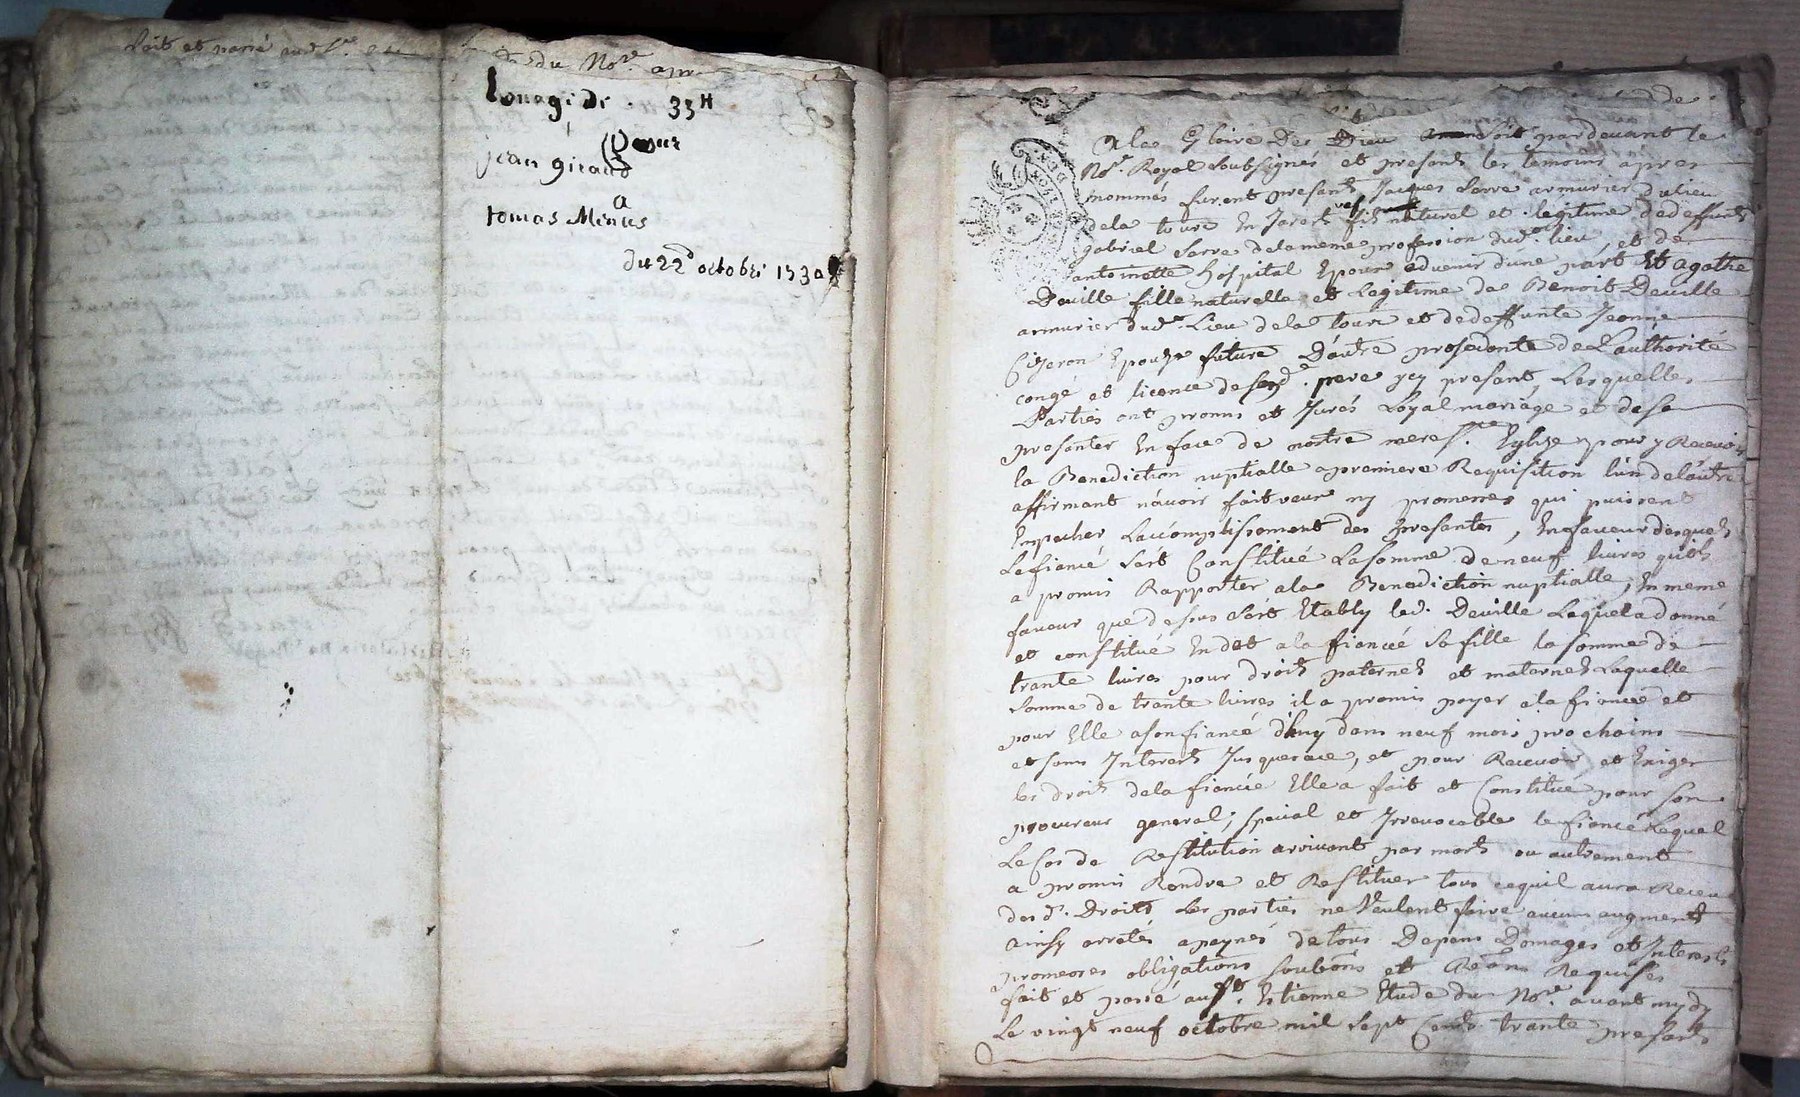 fait et passé aud
du No.re
Louagé de . 33 H
Pour
jean giraud
a
tomas Menus
du 22.d octobre 1730
de
A la Gloire De Dieu soit pardevant le
No.re Royal soubsignes et presents les temoins apres
nommés furent presents Jacques Serre armurier du lieu
de la tour En Jarets fils naturel et legitime de deffunts
gabriel Serre de la meme profession dud. lieu, et de
antoinette hospital Epoux advenir dune part Et agathe
Deville fille naturelle et Legitime de Benoit Deville
armurier dud. Lieu de la tour et de deffunte Jeanne
Cizeron Epouze future D'autre procedante de L'authorité
congé et licence de sond. pere ycy present, Lesquelles
Parties ont promis et Jurés Loyal mariage et de se
presenter En face de nostre mere s.te Eglize pour y Recevoir
la Benediction nuptialle a premiere Requisition l'un de l'autre
affirmant n'avoir fait veux ny promesses qui puissent
Empecher L'accomplissement des presentes, En faveur desquels
Le fiancé s'est Constitué La somme de neuf livres qu'il
a promis Rapporter a la Benediction nuptialle, En meme
faveur que dessus s'est Etably led. Deville Lequel a donné
et constitué En dot a la fiancée sa fille la somme de
trante livres pour droits paternels et maternels Laquelle
somme de trante livres il a promis payer a la fiancée et
pour Elle a son fiancé d'huy dans neuf mois prochains
et sans Interets Jusques a ce, et pour Recevoir et Exiger
les droits de la fiancée Elle a fait et Constitué pour son
procureur general, special et Irrevocable le fiancé Lequel
Le Cas de Restitution arrivant par mort ou autrement
a promis Rendre et Restituer tous ce quil aura Receu
des d. Droits Les parties ne Veulent faire aucun augment
ainsy arretés a peynes de tous Depens Domages et Interests
promesses obligations soubm.ons et Ren.ons Requises
fait et passé a S.t Estienne Etude du No.re avant mydy
Le vingt neuf octobre mil sept Cents trante presents